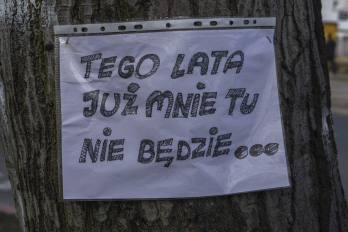 TEGO LATA
JUŻ MNIE TU
NIE BĘDZIE...